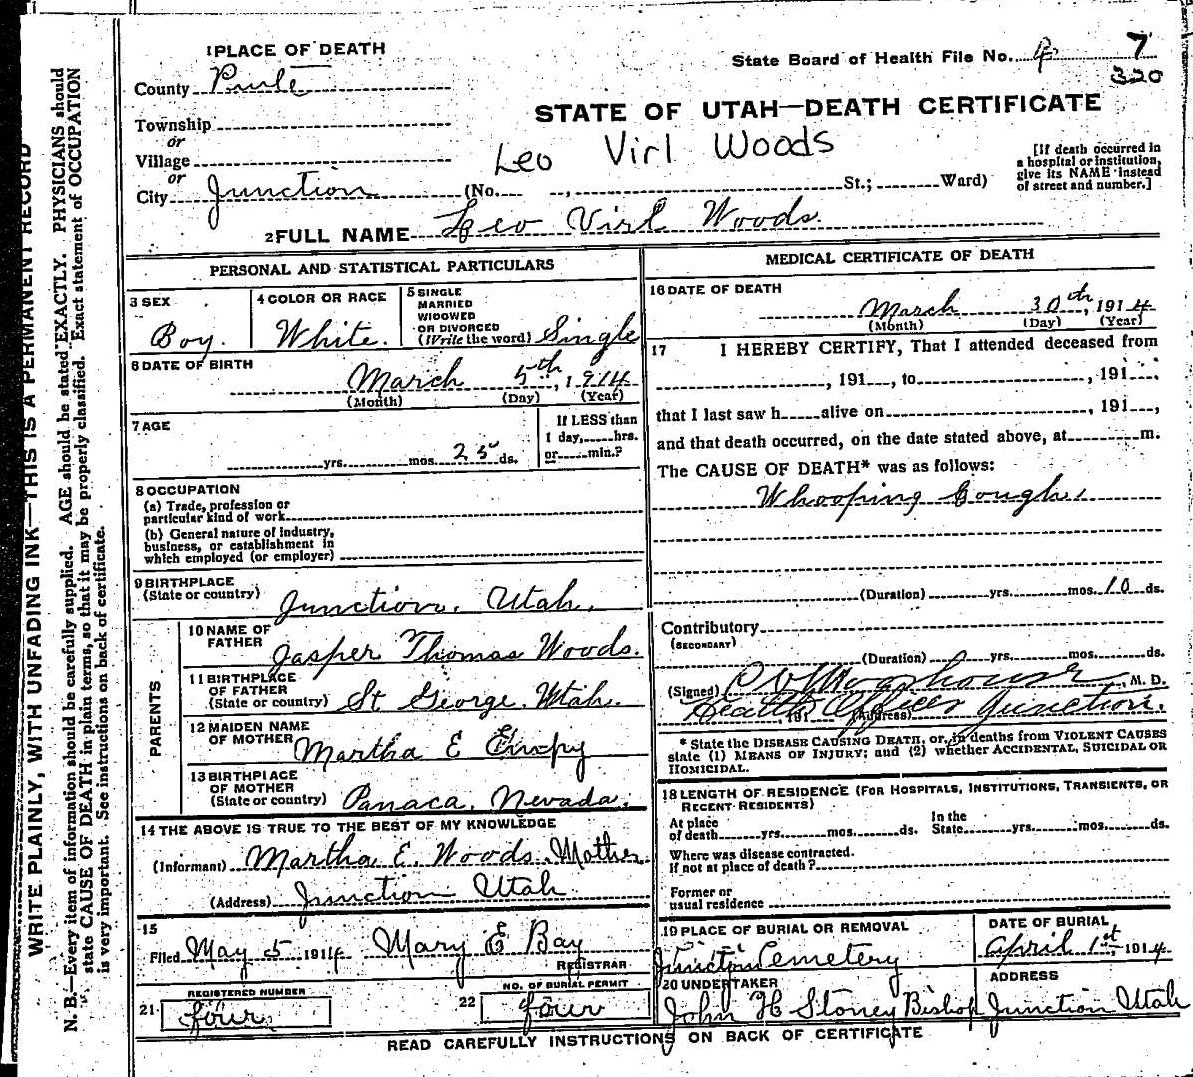 1 PLACE OF DEATH
County Piute
State Board of Health File No. 4 7
320
STATE OF UTAH—DEATH CERTIFICATE
Township
or
Village
or
City Junction (No. , St.; Ward)
Leo Virl Woods
[If death occurred in
a hospital or institution,
give its NAME instead
of street and number.]
2 FULL NAME Leo Virl Woods.
PERSONAL AND STATISTICAL PARTICULARS
3 SEX
Boy.
4 COLOR OR RACE
White.
5 SINGLE
MARRIED
WIDOWED
OR DIVORCED
(Write the word) Single
6 DATE OF BIRTH
March 5th, 1914
(Month) (Day) (Year)
7 AGE
yrs. mos. 25 ds.
If LESS than
1 day, hrs.
or min.?
8 OCCUPATION
(a) Trade, profession or
particular kind of work
(b) General nature of industry,
business, or establishment in
which employed (or employer)
9 BIRTHPLACE
(State or country) Junction, Utah.
PARENTS
10 NAME OF
FATHER Jasper Thomas Woods.
11 BIRTHPLACE
OF FATHER
(State or country) St George, Utah.
12 MAIDEN NAME
OF MOTHER Martha E
13 BIRTHPLACE
OF MOTHER
(State or country) Panaca, Nevada.
14 THE ABOVE IS TRUE TO THE BEST OF MY KNOWLEDGE
(Informant) Martha E. Woods. Mother
(Address) Junction Utah
15
Filed May 5 1914 Mary E Bay
REGISTRAR
21 REGISTERED NUMBER
four
22 NO. OF BURIAL PERMIT
four
MEDICAL CERTIFICATE OF DEATH
16 DATE OF DEATH
March 30th, 1914
(Month) (Day) (Year)
17 I HEREBY CERTIFY, That I attended deceased from
, 191 , to , 191
that I last saw h alive on , 191 ,
and that death occurred, on the date stated above, at m.
The CAUSE OF DEATH* was as follows:
Whooping Cough.
(Duration) yrs. mos. 10 ds.
Contributory
(SECONDARY)
(Duration) yrs. mos. ds.
(Signed) M. D.
Health Officer Junction.
, 191 (Address)
* State the DISEASE CAUSING DEATH, or, in deaths from VIOLENT CAUSES
state (1) MEANS OF INJURY; and (2) whether ACCIDENTAL, SUICIDAL OR
HOMICIDAL.
18 LENGTH OF RESIDENCE (FOR HOSPITALS, INSTITUTIONS, TRANSIENTS, OR
RECENT RESIDENTS)
At place
of death yrs. mos. ds.
In the
State yrs. mos. ds.
Where was disease contracted.
if not at place of death?
Former or
usual residence
19 PLACE OF BURIAL OR REMOVAL
Junction Cemetery
DATE OF BURIAL
April 1st, 1914
20 UNDERTAKER
John H Stoney Bishop
ADDRESS
Junction Utah
READ CAREFULLY INSTRUCTIONS ON BACK OF CERTIFICATE
WRITE PLAINLY, WITH UNFADING INK—THIS IS A PERMANENT RECORD
N. B.—Every item of information should be carefully supplied. AGE should be stated EXACTLY. PHYSICIANS should
state CAUSE OF DEATH in plain terms, so that it may be properly classified. Exact statement of OCCUPATION
is very important. See instructions on back of certificate.